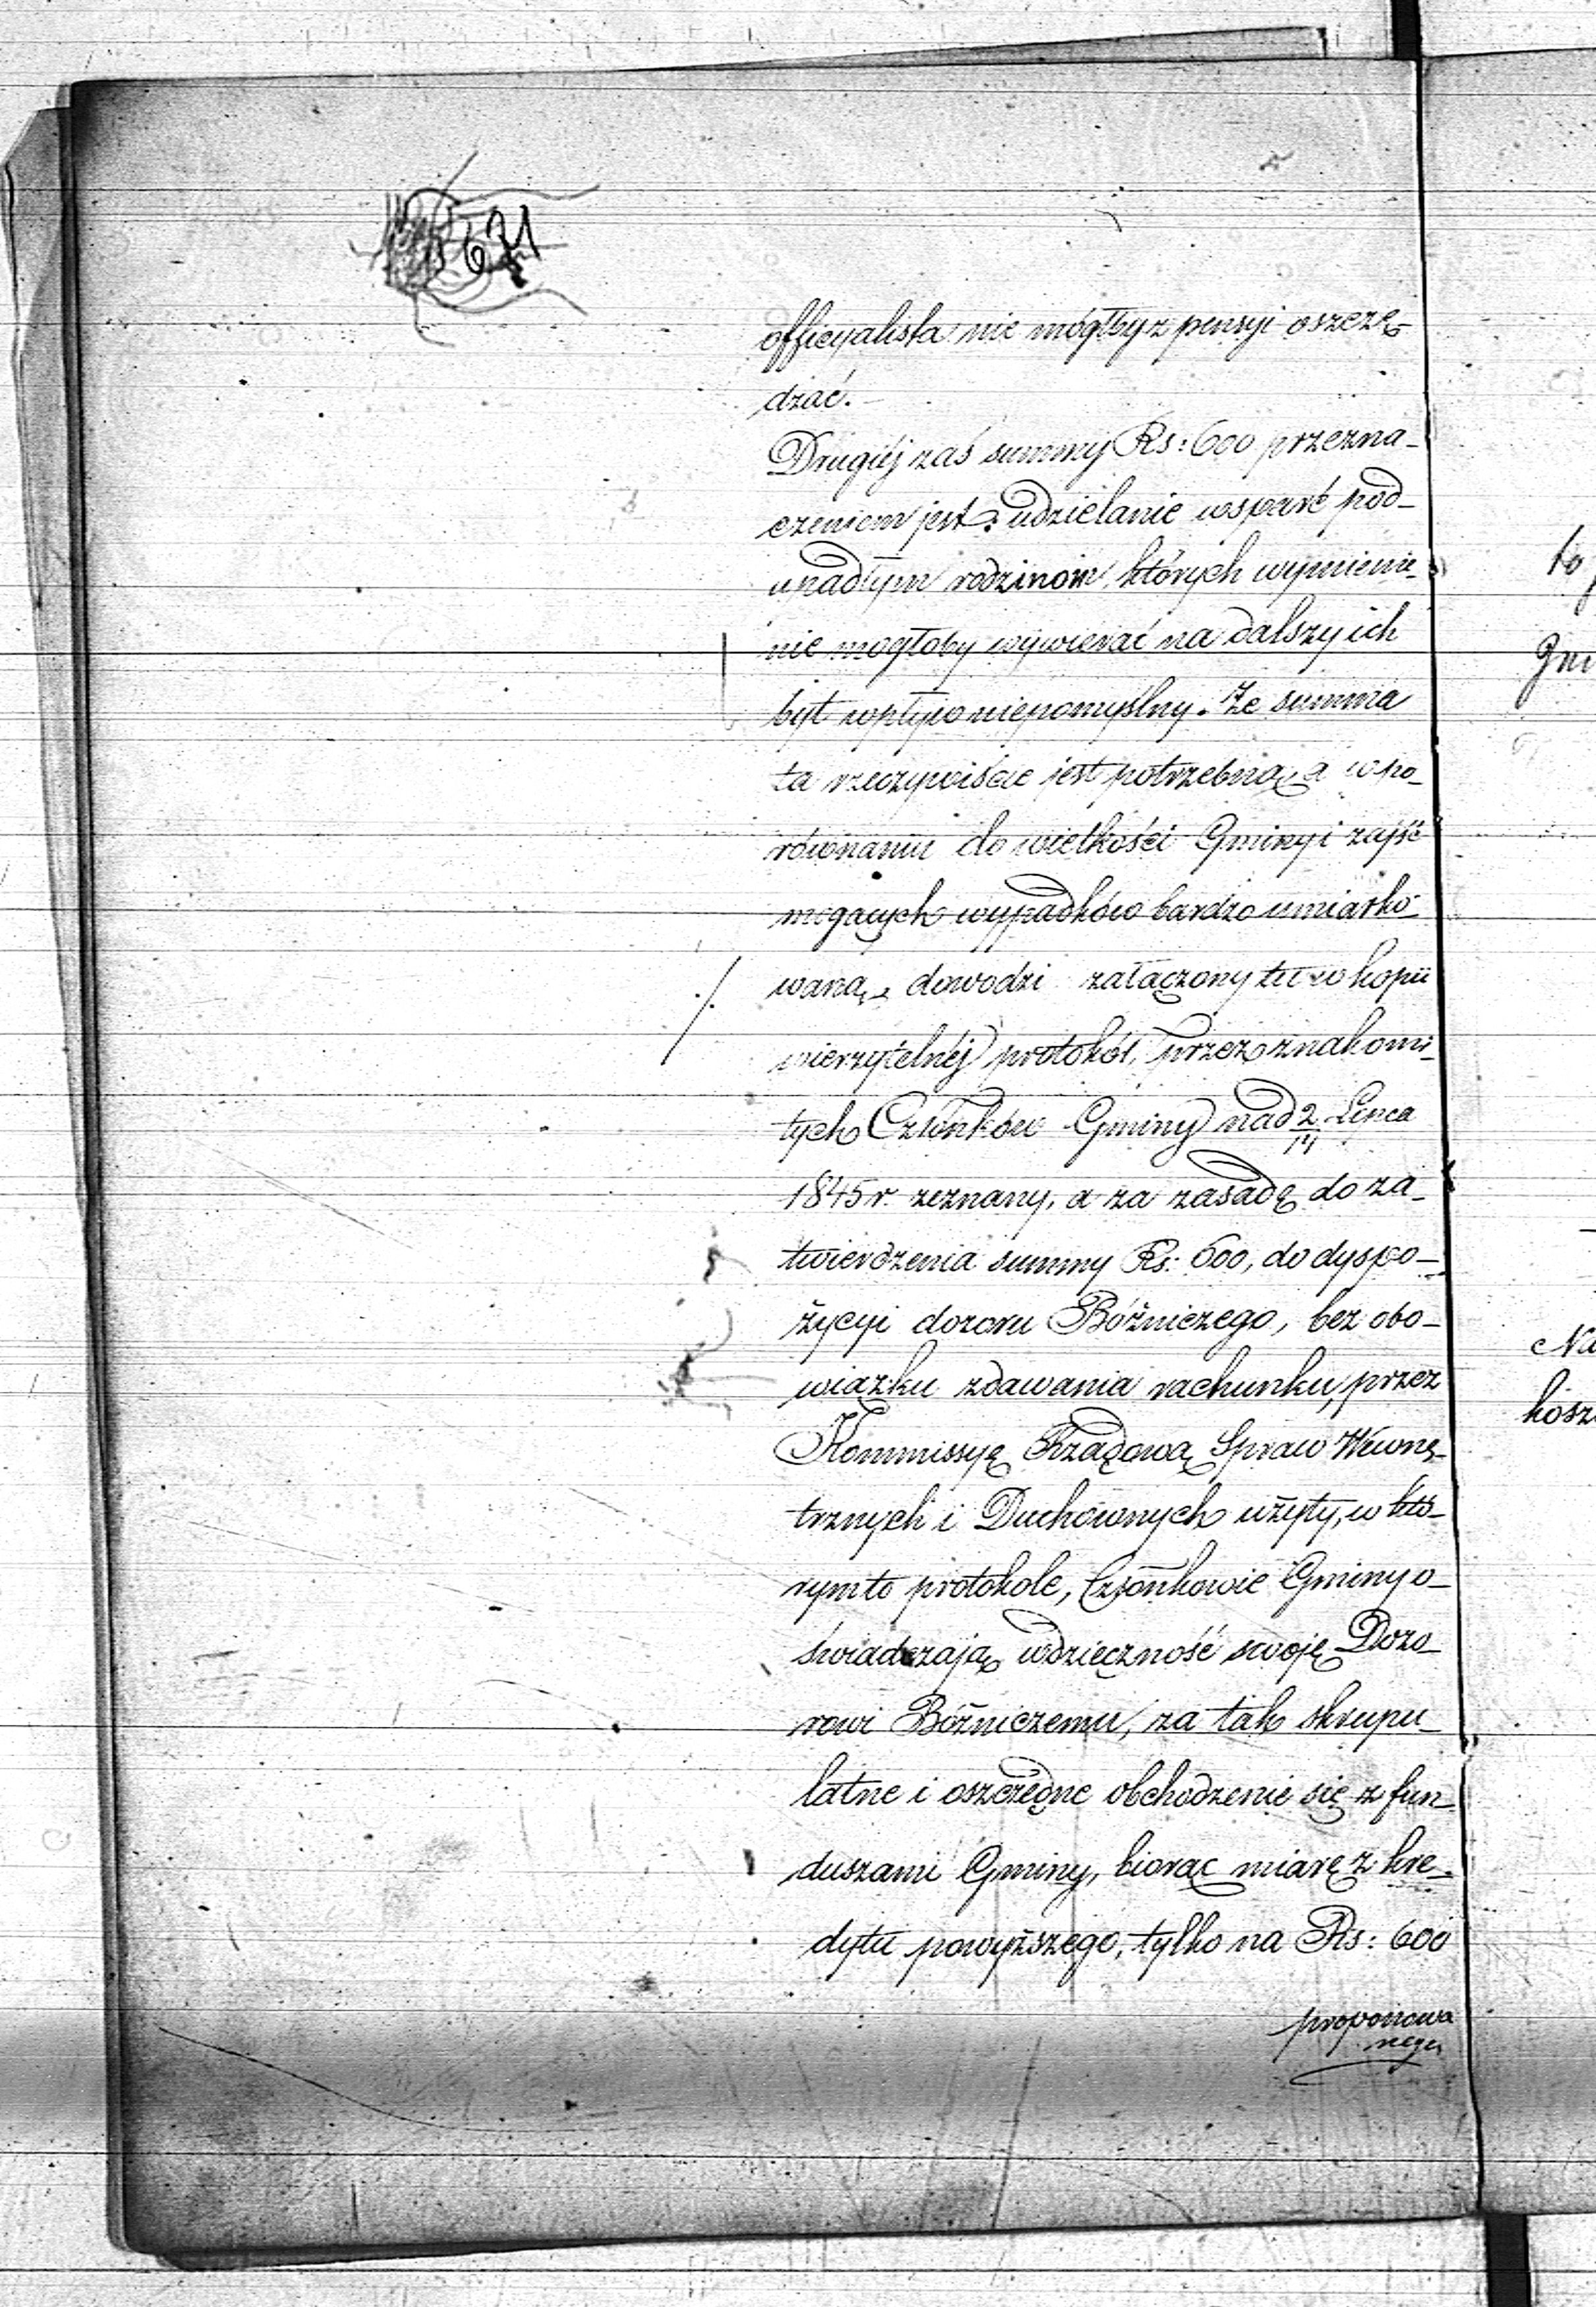 671
officyalista nie mógłby z pensyi oszczę-
dzać.
Drugiéj zaś summy Rs: 600 przezna-
czeniem jest: udzielanie wsparć pod-
upadłym rodzinom, których wymienie-
nie mogłoby wywierać na dalszy ich
byt wpływ niepomyślny. Że summa
ta rzeczywiście jest potrzebną, a w po-
równaniu do wielkości Gminy i zajść
mogących wypadków bardzo umiarko-
waną, dowodzi załączony tu w kopii
wierzytelnéj protokół, przez znakomi-
tych Członków Gminy nad 2/14 Lipca
1845 r. zeznany, a za zasadę do za-
twierdzenia summy Rs: 600, do dyspo-
życyi dozoru Bóżniczego, bez obo-
wiązku zdawania rachunku, przez
Kommissyą Rządową Spraw Wewnę-
trznych i Duchownych użyty, w któ-
rymto protokole, Członkowie Gminy o-
świadczają wdzięczność swoję Dozo-
rowi Bóżniczemu, za tak skrupu-
latne i oszczędne obchodzenie się z fun-
duszami Gminy, biorąc miarę z kre-
dytu powyższego, tylko na Rs: 600
proponowa
nego
to
Gmi
Na
kosz